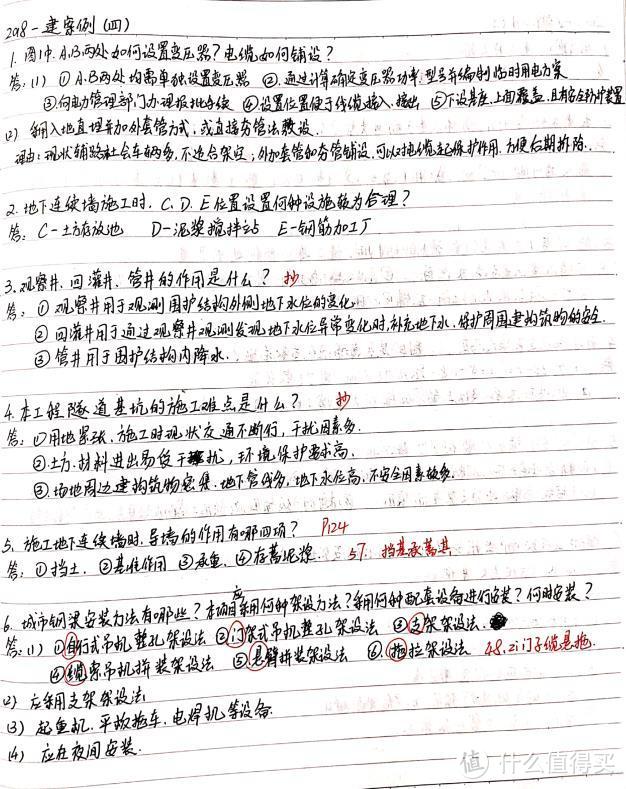 2018一建案例(四)
1. 图中.A.B两处如何设置变压器?电缆如何铺设?
答:(1) ①A.B两处均需单独设置变压器 ②.通过计算确定变压器功率.型号并编制临时用电方案
③向电力管理部门办理报批手续 ④设置位置便于线缆接入、接出 ⑤下设基座.上面覆盖.且有安全防护装置
(2) 采用入地直埋并加外套管方式,或直接夯管法敷设.
理由:现状辅路社会车辆多,不适合架空;外加套管如夯管铺设,可以对电缆起保护作用.方便后期拆除.
2.地下连续墙施工时.C.D.E位置设置何种设施较为合理?
答:C-土方存放池 D-泥浆搅拌站 E-钢筋加工厂
3.观察井.回灌井.管井的作用是什么? 抄
答:①观察井用于观测围护结构外侧地下水位的变化.
②回灌井用于通过观察井观测发现地下水位异常变化时,补充地下水.保护周围建构筑物的安全.
③管井用于围护结构内降水.
4.本工程隧道基坑的施工难点是什么? 抄
答:①用地紧张.施工时现状交通不断行,干扰因素多.
②土方.材料进出易受干扰,环境保护要求高.
③场地周边建构筑物密集.地下管线多,地下水位高.不安全因素较多.
5.施工地下连续墙时.导墙的作用有哪四项? P124
答:①挡土.②基准作用 ③承重.④存蓄泥浆. 57.挡基承蓄其
6.城市钢梁安装方法有哪些?本项目应采用何种架设方法?采用何种配套设备进行安装?何时安装?
答:(1) ①自行式吊机整孔架设法 ②门架式吊机整孔架设法 ③支架架设法.
④缆索吊机拼装架设法 ⑤悬臂拼装架设法 ⑥拖拉架设法 48.zi门子缆悬拖.
(2) 应采用支架架设法
(3) 起重机.平板拖车.电焊机等设备.
(4) 应在夜间安装.
值 什么值得买